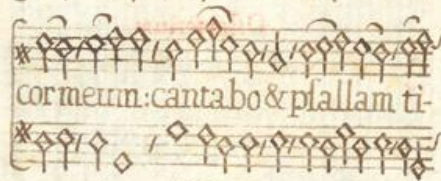 cor meum: cantabo & psallam ti-